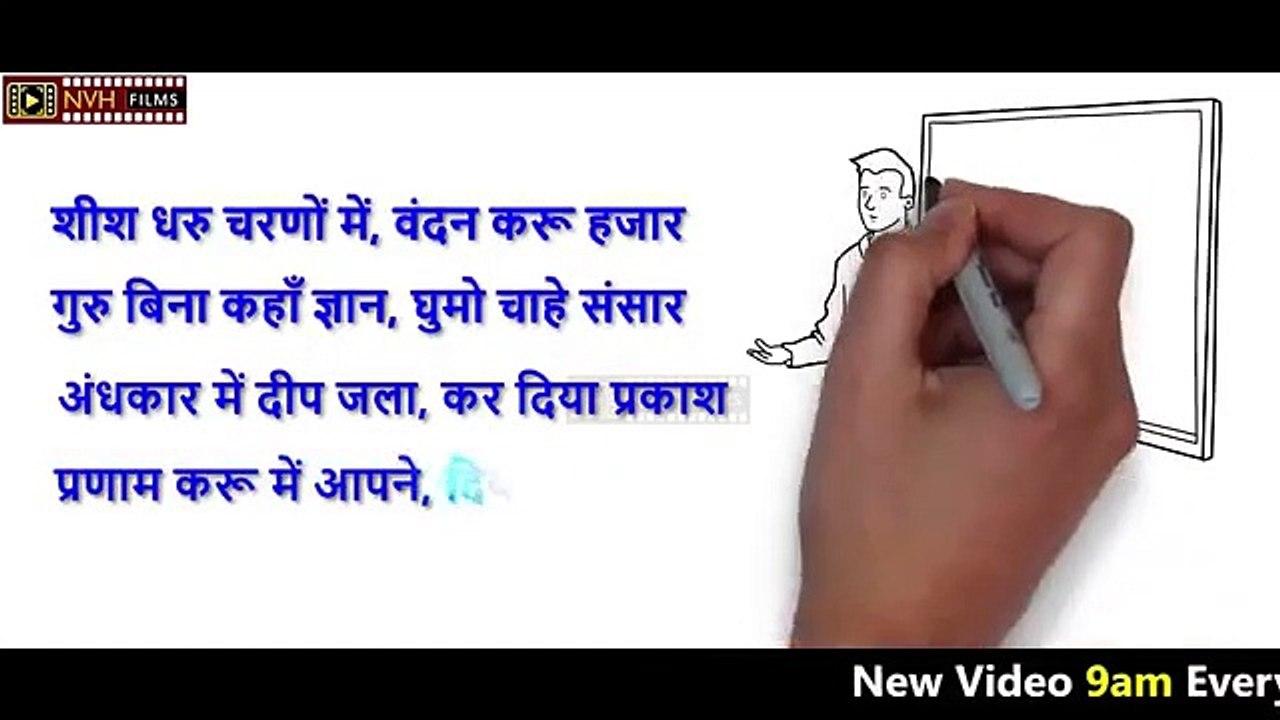 NVH FILMS
शीश धरु चरणों में, वंदन करू हजार
गुरु बिना कहाँ ज्ञान, घुमो चाहे संसार
अंधकार में दीप जला, कर दिया प्रकाश
प्रणाम करू में आपने,
New Video 9am Every